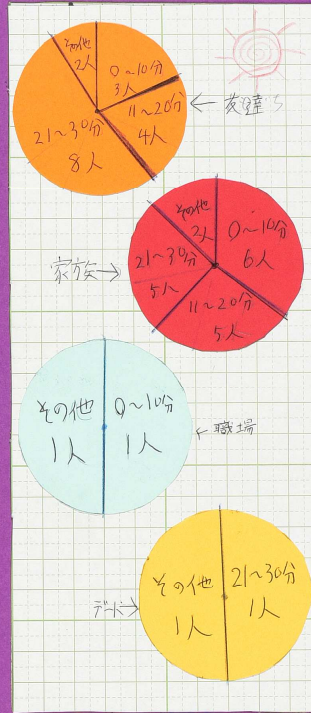 その他
2人
0~10分
3人
11~20分
4人
21~30分
8人
← 友達
その他
2人
0~10分
6人
11~20分
5人
21~30分
5人
家族→
その他
1人
0~10分
1人
←職場
その他
1人
21~30分
1人
デート→